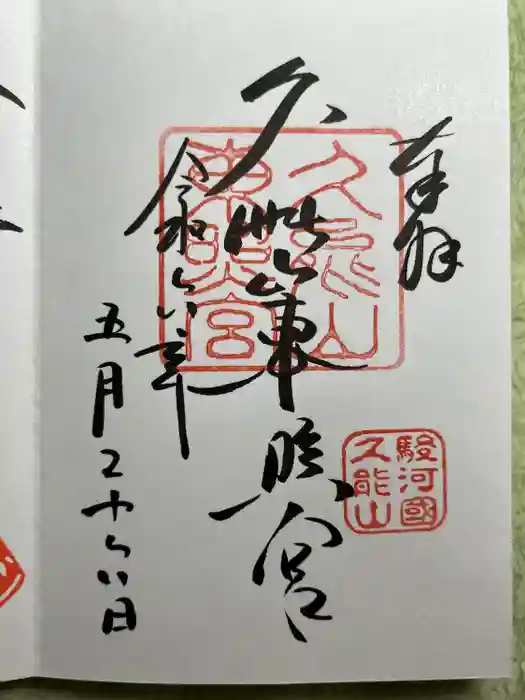 奉拝
久能山東照宮
令和六年
五月二十六日
久能山
東照宮
駿河國
久能山